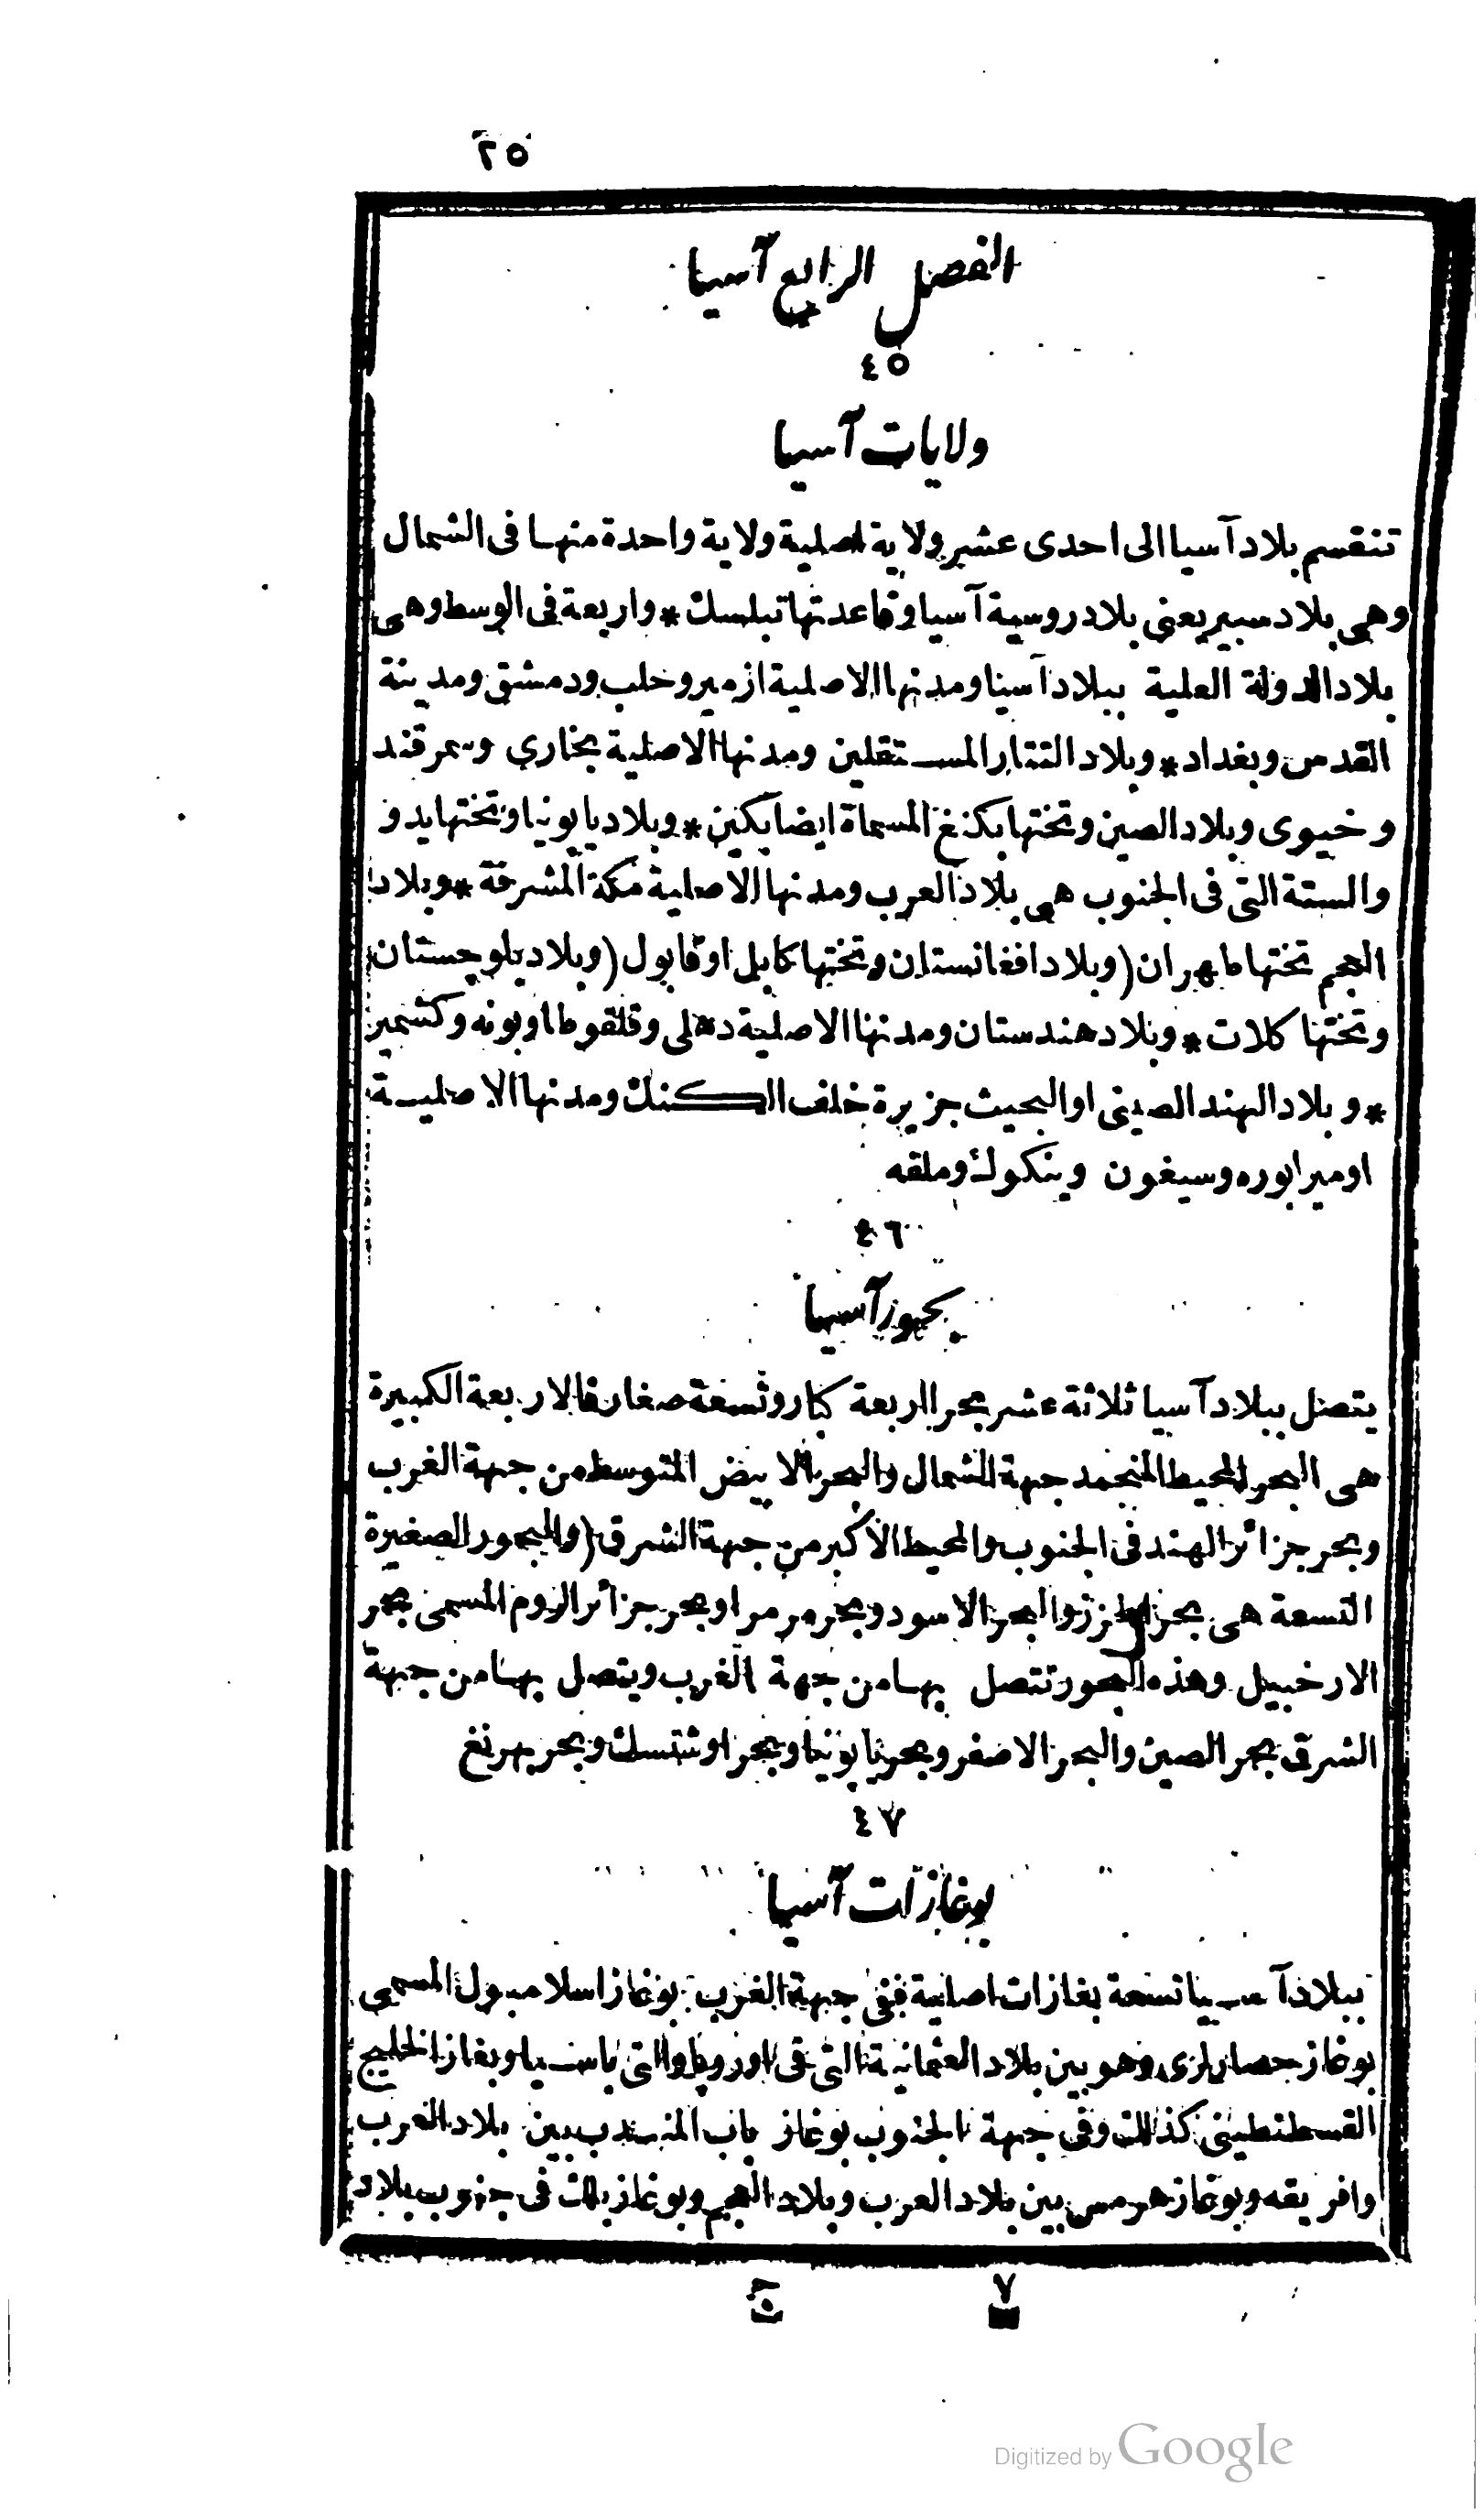 ٢٥
الفصل الرابع آسيا
٤٥
ولايات آسيا
تنقسم بلاد آسيا الى احدى عشر ولاية اصلية ولاية واحدة منها فى الشمال
وهى بلاد سبير يعنى بلاد روسية آسيا وقاعدتها تبلسك * واربعة فى الوسط وهى
بلاد الدولة العلية ببلاد آسيا ومدنها الاصلية ازمير وحلب ودمشق ومدينة
القدس وبغداد * وبلاد التتار المستقلين ومدنها الاصلية بخاري وسمرقند
وخيوى وبلاد الصين وتختها بكنغ المسماة ايضا بكين * وبلاد يابونيا وتختها يدو
والستة التى فى الجنوب هى بلاد العرب ومدنها الاصلية مكة المشرفة * وبلاد
العجم تختها طهران (وبلاد افغانستان وتختها كابل او قابول (وبلاد بلوجستان
وتختها كلات * وبلاد هندستان ومدنها الاصلية دهلى وقلقوطا وبونه وكشمير
* وبلاد الهند الصينى او البحيث جزيرة خلف الكنك ومدنها الاصلية
اوميرابوره وسيغون وبنكوك وملقه
٤٦
بحور آسيا
يتصل ببلاد آسيا ثلاثة عشر بحرا اربعة كبار وتسعة صغار فالاربعة الكبيرة
هى البحر المحيط المنجمد جهة الشمال والبحر الابيض المتوسط من جهة الغرب
وبحر جزائر الهند فى الجنوب والمحيط الاكبر من جهة الشرق (والبحور الصغيرة
التسعة هى بحر الخزر والبحر الاسود وبحر مرمرا وبحر جزائر الروم المسمى بحر
الارخبيل وهذه البحور تتصل بها من جهة الغرب ويتصل بها من جهة
الشرق بحر الصين والبحر الاصفر وبحر يابونيا وبحر اوشتسك وبحر بهرنغ
٤٧
بوغازات آسيا
ببلاد آسيا تسعة بغازات اصلية ففى جهة الغرب بوغاز اسلامبول المسمى
بوغاز حصارلرى وهو بين بلاد العثمانية التى فى اوروبا والتى باسيا وبغاز الخليج
القسطنطينى كذلك وفى جهة الجنوب بوغاز باب المندب بين بلاد العرب
وافريقه وبوغاز هرمس بين بلاد العرب وبلاد العجم وبوغاز بلك فى جنوب بلاد
٧
Digitized by Google